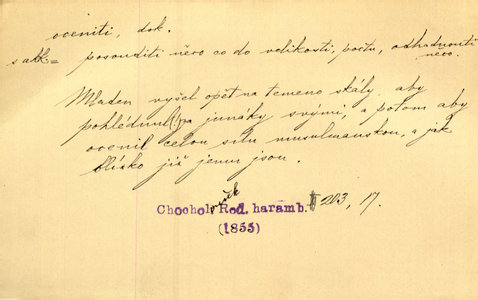 oceniti, dok.
s akk = posouditi něco co do velikosti, počtu, odhadnouti
něco.
Mladen vyšel opět na temeno skály, aby
pohlédnul (j) za junáky svými, a potom aby
ocenil celou sílu musulmanskou, a jak
blízko již jemu jsou.
Chocholoušek Rod. harámb. II 203, 17.
(1855)